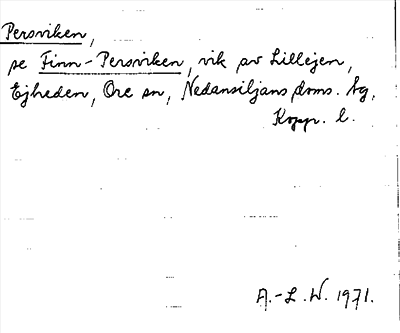 Persviken,
se Finn-Persviken, vik av Lillejen,
Ejheden, Ore sn, Nedansiljans doms. tg,
Kopp. l.
A.-L. W. 1971.